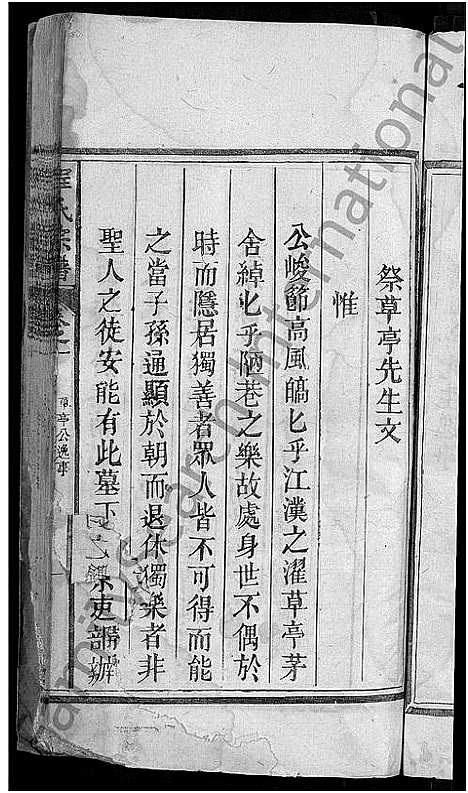 祭草亭先生文
惟
公峻節高風皜匕乎江漢之濯草亭茅
舍綽匕乎陋巷之樂故處身世不偶於
時而隱居獨善者眾人皆不可得而能
之當子孫通顯於朝而退休獨樂者非
聖人之徒安能有此墓下 吏部辦
氏宗譜
草亭公逸事